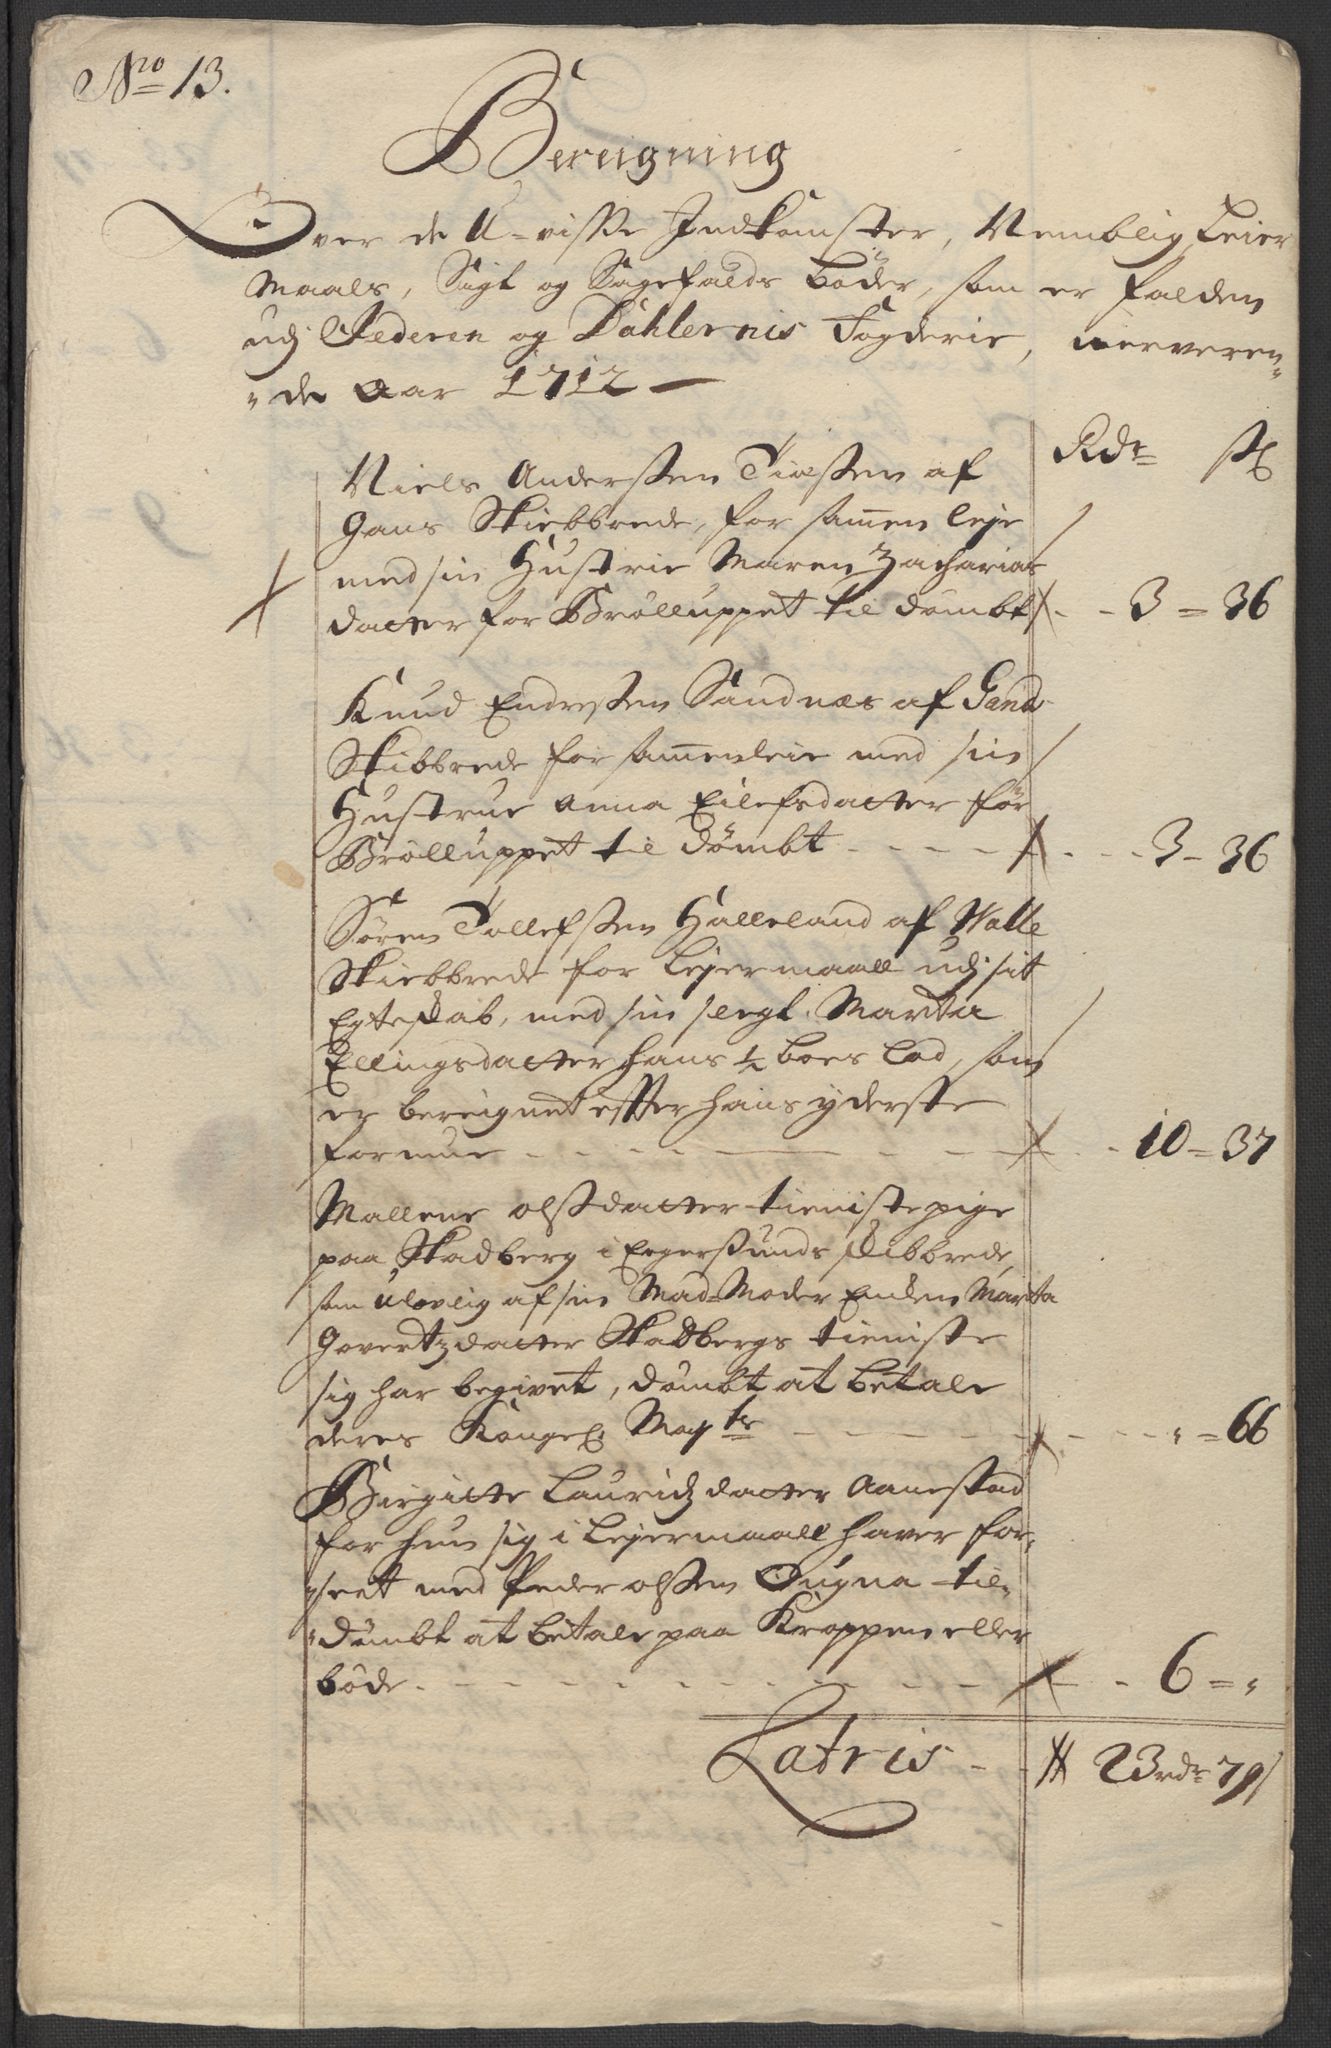 No 13.
Bereigning
Over de U-visse Indkomster, Nemblig Leier
Maals, Sigt og Sagefalds bøder, som er falden
udj Jederen og Dahlernis Fogderie, nerveren-
"de Aar 1712 —
Rdr s
Niels Anderssen Tiossen af
Gans Skiebbrede, for samen leje
med sin Hustrue Maren Zacharias
datter for Brølluppet til dømbt - - 3 = 36
Knud Endressen Sandnæs af Gand
Skibbrede for samenleie med sin
Hustrue Anna Eilefsdatter før
Brølluppet til dømbt - - - - - - 3 - 36
Søren Tollefssen Halleland af Walle
Skiebbrede for Lejermaall udj sit
Egteskab, med sin slegt. Marita
Ellingsdatter hans 1/2 boes lod, som
er bereignet effter hans yderste
formue - - - - - - 10 = 37
Mallene olssdatter tieniste pige
paa Skadberg i Eegersunds skibbrede,
som ulovlig af sin Mad-Moder Enken Marita
Govertzdatter Skadbergs tieniste
sig har begivet, dømbt at betale
deres Kongel. Mayts - - - - - " = 66
Birgitte Lauridzdatter Aanestad
for hun sig i Lejermaall haver for-
"seet med Peder olssen Ougna til-
"dømbt at betale paa Kroppen eller
bøde. - - - - - - 6 = "
Latris - - 23 rdr 79